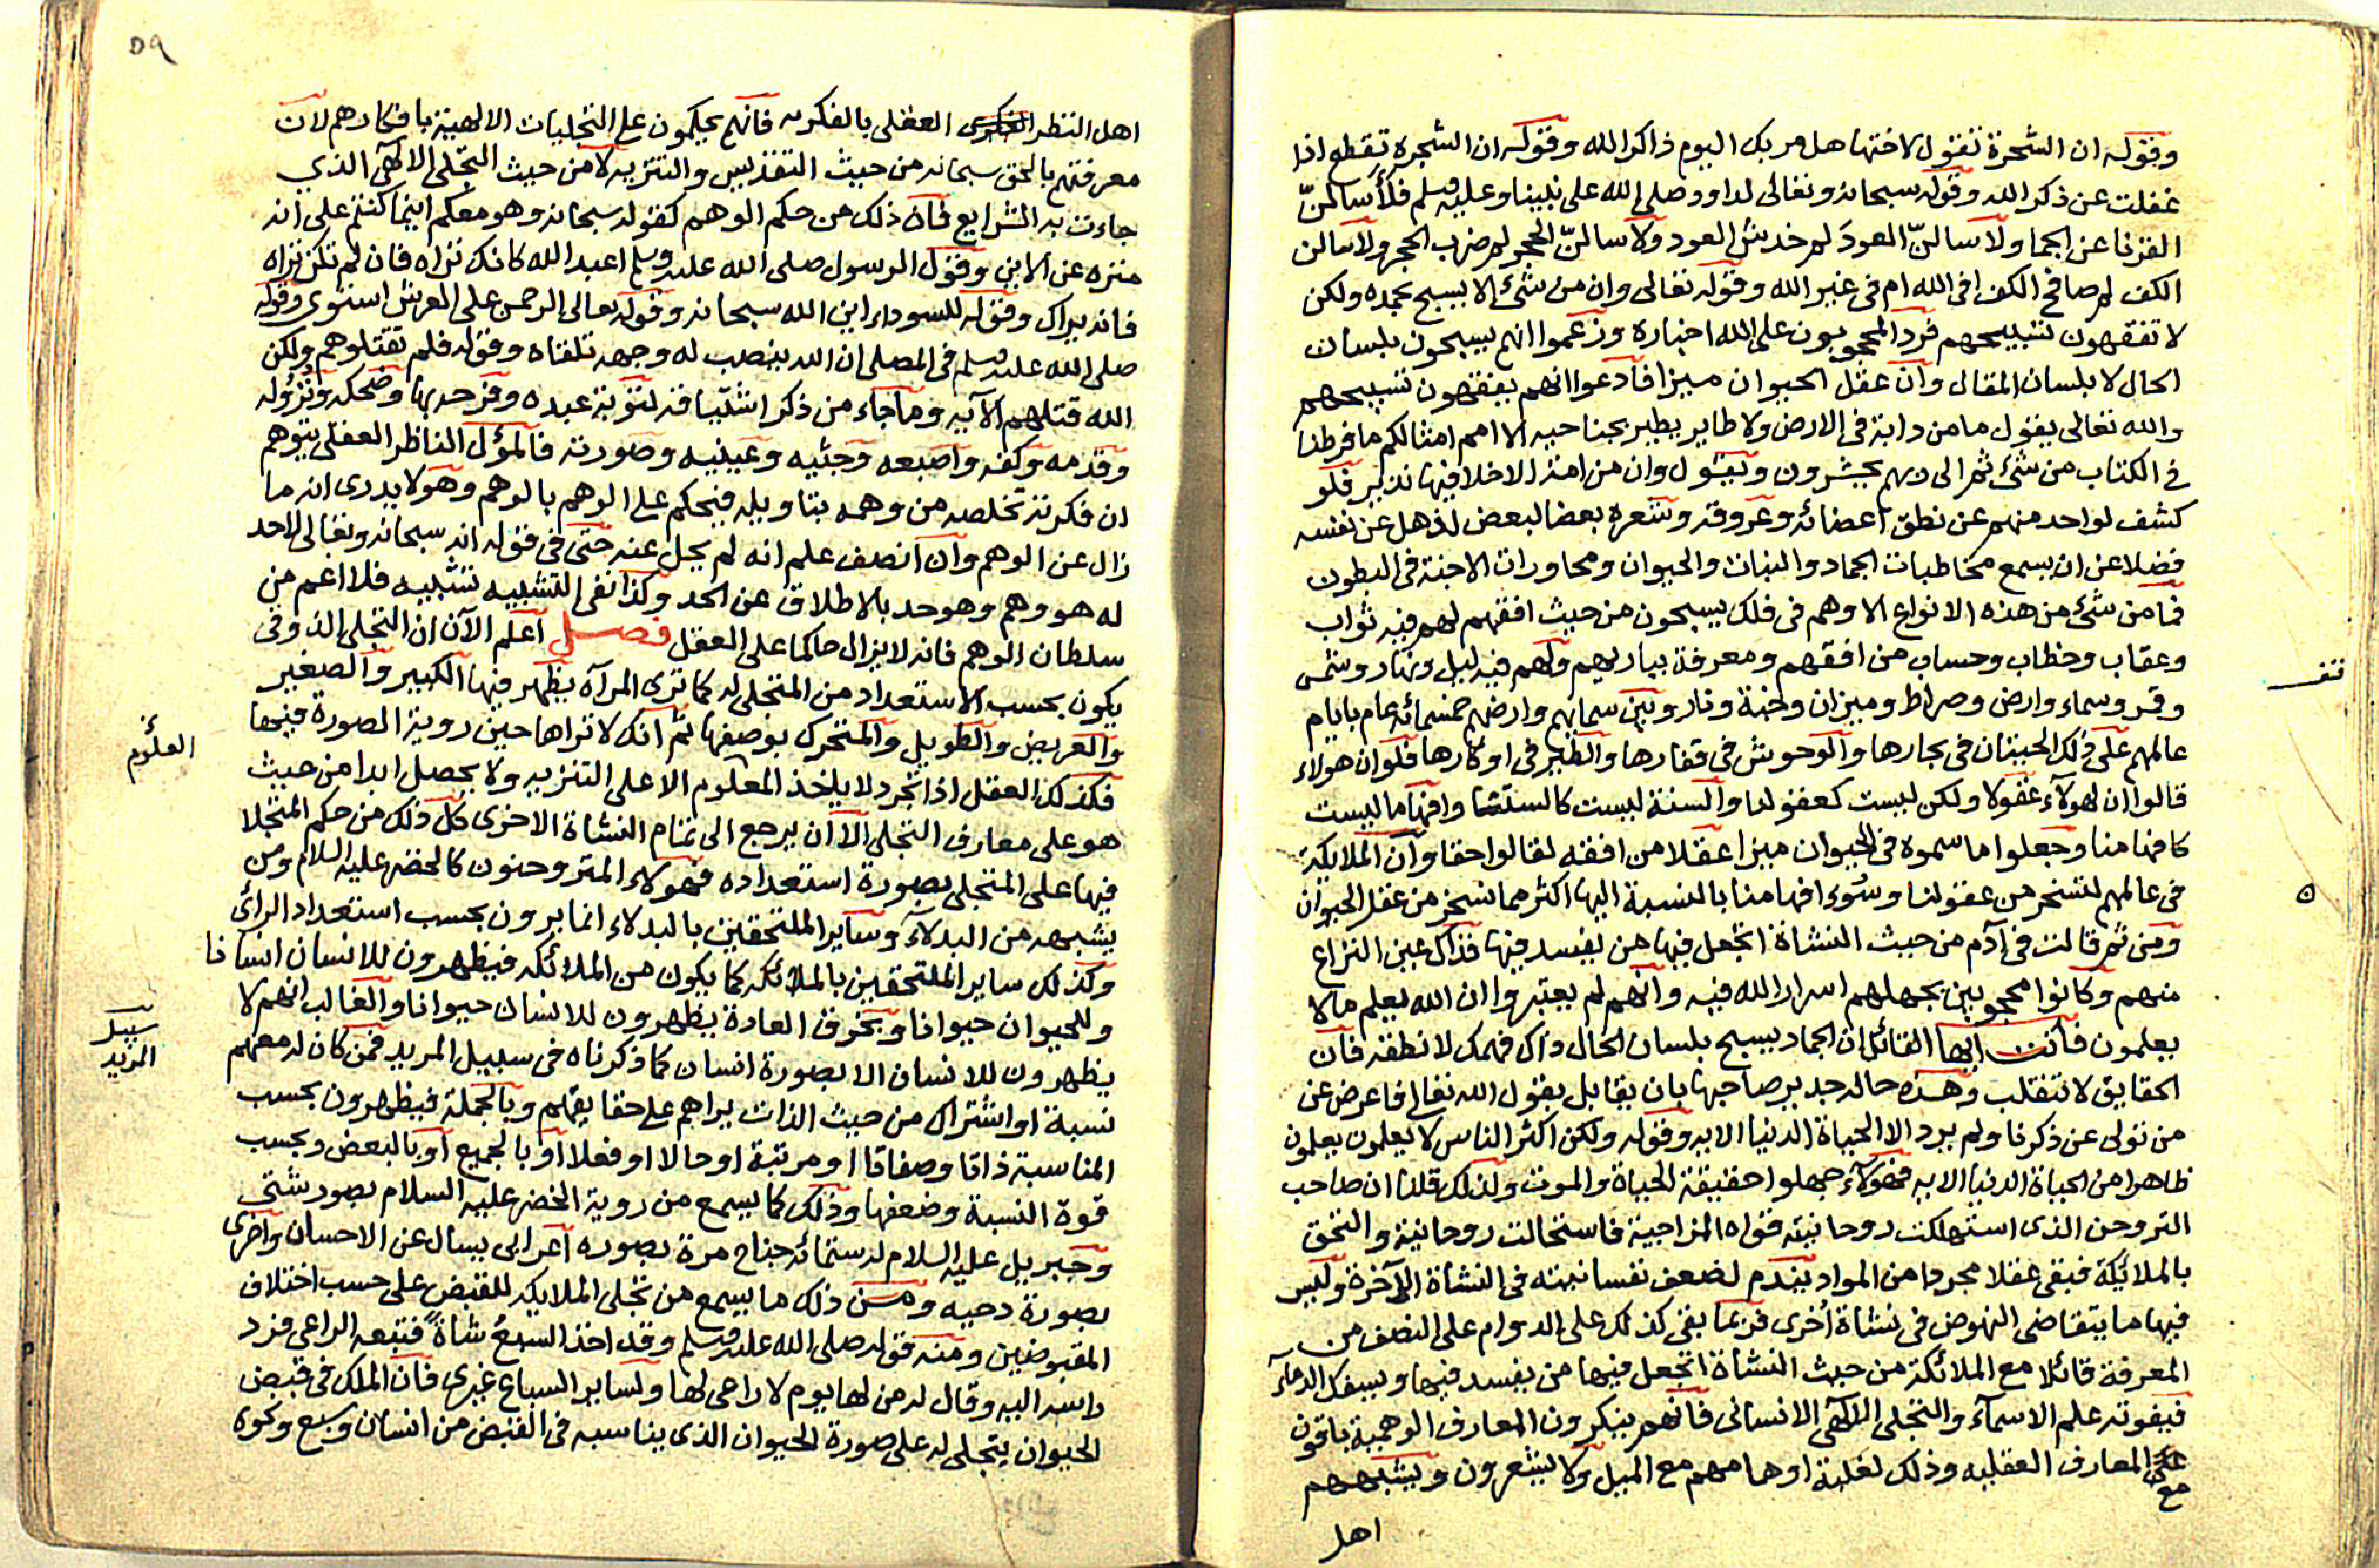 وقوله ان الشجرة تقول لاختها هل مر بك اليوم ذاكر الله وقوله ان الشجرة تقطع اذا
غفلت عن ذكر الله وقوله سبحانه وتعالى لداود صلى الله على نبينا وعليه وسلم فلأسالنّ
القرنا عن الجما ولاسالنّ العود لم خدش العود ولاسالنّ الحجر لم ضرب الحجر ولاسالن
الكف لم صافح الكف افى الله ام فى غير الله وقوله تعالى وان من شئ الا يسبح بحمده ولكن
لا تفقهون تسبيحهم فرد المحجوبون على الله اخباره وزعموا انهم يسبحون بلسان
الحال لا بلسان المقال وان عقل الحيوان ميزا فادعوا انهم يفقهون تسبيحهم
والله تعالى يقول ما من دابة فى الارض ولا طاير يطير بجناحيه الا امم امثالكم ما فرطنا
فى الكتاب من شئ ثم الى ربهم يحشرون ويقول وان من امة الا خلا فيها نذير فلو
كشف لواحد منهم عن نطق اعضائه وعروقه وشعره بعضا لبعض لذهل عن نفسه
فضلا عن ان يسمع مخاطبات الجماد والنبات والحيوان ومحاورات الاجنة فى البطون
فما من شئ من هذه الانواع الا وهم فى فلك يسبحون من حيث افقهم لهم فيه ثواب
وعقاب وخطاب وحساب من افقهم ومعرفة بباريهم ولهم فيه ليل ونهار وشمس
وقمر وسماء وارض وصراط وميزان وجنة ونار وبين سمايهم وارضهم خمسمائة عام بايام
عالمهم على ذلك الحيتان فى بحارها والوحوش فى قفارها والطير فى اوكارها فلو ان هولاء
قالوا ان لهولآء عقولا ولكن ليست كعقولنا والسنة ليست كالسنتنا وافهاما ليست
كافهامنا وجعلوا ما سموه فى الحيوان ميزا عقلا من افقه لقالوا حقا وان الملايكة
فى عالمهم لتسخر من عقولنا وسوء افهامنا بالنسبة اليها اكثر مما نسخر من عقل الحيوان
ومن ثم قالت فى آدم من حيث النشاة اتجعل فيها من يفسد فيها فذاك عين النزاع
منهم وكانوا محجوبين بجهلهم اسرار الله فيه وانهم لم يعتبروا ان الله يعلم ما لا
يعلمون فانت ايها القائل ان الجماد يسبح بلسان الحال ذاك فهمك لا نطقه فان
الحقايق لا تنقلب وهذه حاله جدير صاحبها بان يقابل بقول الله تعالى فاعرض عن
من تولى عن ذكرنا ولم يرد الا الحياة الدنيا الايه وقوله ولكن اكثر الناس لا يعلمون يعلمون
ظاهرا من الحياة الدنيا الايه فهولآء جهلوا حقيقة الحياة والموت ولذلك قلنا ان صاحب
التروحن الذى استهلكت روحانيته قواه المزاجية فاستحالت روحانية والتحق
بالملائكة فبقى عقلا مجردا من المواد يندم لضعف نفسانيته فى النشاة الآخرة وليس
فيها ما يتقاضى النهوض فى نشاة أخرى فربما بقى كذلك على الدوام على النصف من
المعرفة قائلا مع الملائكة من حيث النشاة اتجعل فيها من يفسد فيها ويسفك الدماء
فيفوته علم الاسمآء والتجلى الالهى الانسانى فانهم ينكرون المعارف الوهمية باقون
على المعارف العقليه وذلك لغلبة اوهامهم مع الميل ولا يشعرون ويشبههم
مع
اهل
٥٩
اهل النظر العقلى بالفكر فانهم يحكمون على التجليات الالهية بافكارهم لان
معرفتهم بالحق سبحانه من حيث التقديس والتنزيه لا من حيث التجلى الالهى الذي
جاءت به الشرايع فان ذلك من حكم الوهم كقوله سبحانه وهو معكم اينما كنتم على انه
منزه عن الاين وقول الرسول صلى الله عليه وسلم اعبد الله كانك تراه فان لم تكن تراه
فانه يراك وقوله للسوداء اين الله سبحانه وقوله تعالى الرحمن على العرش استوى وقوله
صلى الله عليه وسلم فى المصلى ان الله ينصب له وجهه تلقاه وقوله فلم تقتلوهم ولكن
الله قتلهم الآيه وما جاء من ذكر اشتياقه لتوبة عبده وفرحه بها وضحكه ونزوله
وقدمه وكفه واصبعه وجثيه وعينيه وصورته فالمؤل الناظر العقلى يتوهم
ان فكرته تخلصه من وهمه بتاويله فيحكم على الوهم بالوهم وهو لا يدرى انه ما
زال عن الوهم وان انصف علم انه لم يحل عنه حتى فى قوله انه سبحانه وتعالى لا حد
له هو وهم وهو حد بالاطلاق عن الحد وكذا نفى التشبيه تشبيه فلا اعم من
سلطان الوهم فانه لا يزال حاكما على العقل فصل اعلم الآن ان التجلى الذوقى
يكون بحسب الاستعداد من المتجلى له كما ترى المرآه يظهر فيها الكبير والصغير
والعريض والطويل والمتحرك بوصفها ثم انك لا تراها حين روية الصورة فيها
فكذلك العقل اذا تجرد لا ياخذ المعلوم الا على التنزيه ولا يحصل ابدا من حيث
هو على معارف التجلى الا ان يرجع الى تمام النشاة الاخرى كل ذلك من حكم المتجلا
فيها على المتجلى بصورة استعداده فهولاء المتروحنون كالخضر عليه السلام ومن
يشبهه من البدلآء وساير الملتحقين بالبدلاء انما يرون بحسب استعداد الرائى
وكذلك ساير الملتحقين بالملائكه كما يكون من الملائكه فيظهرون للانسان انسانا
وللحيوان حيوانا وبخرق العادة يظهرون للانسان حيوانا والغالب انهم لا
يظهرون للانسان الا بصورة انسان كما ذكرناه فى سبيل المريد فمن كان له معهم
نسبة او اشتراك من حيث الذات يراهم على حقايقهم وبالجملة فيظهرون بحسب
المناسبة ذاتا وصفاتا او مرتبة او حالا او فعلا او بالجميع او بالبعض وبحسب
قوة النسبة وضعفها وذلك كما يسمع من روية الخضر عليه السلام بصور شتى
وجبريل عليه السلام له ستمائة جناح مرة بصوره اعرابى يسال عن الاحسان واخرى
بصورة دحيه ومن ذلك ما يسمع من تجلى الملايكه للقبض على حسب اختلاف
المقبوضين ومنه قوله صلى الله عليه وسلم وقد اخذ السبع شاة فتبعه الراعى فرد
راسه اليه وقال له من لها يوم لا راعى لها ولساير السباع غيرى فان الملك فى قبض
الحيوان يتجلى له على صورة الحيوان الذى يناسبه فى القبض من انسان وسبع ونحوه
العلوم
سبيل
المريد